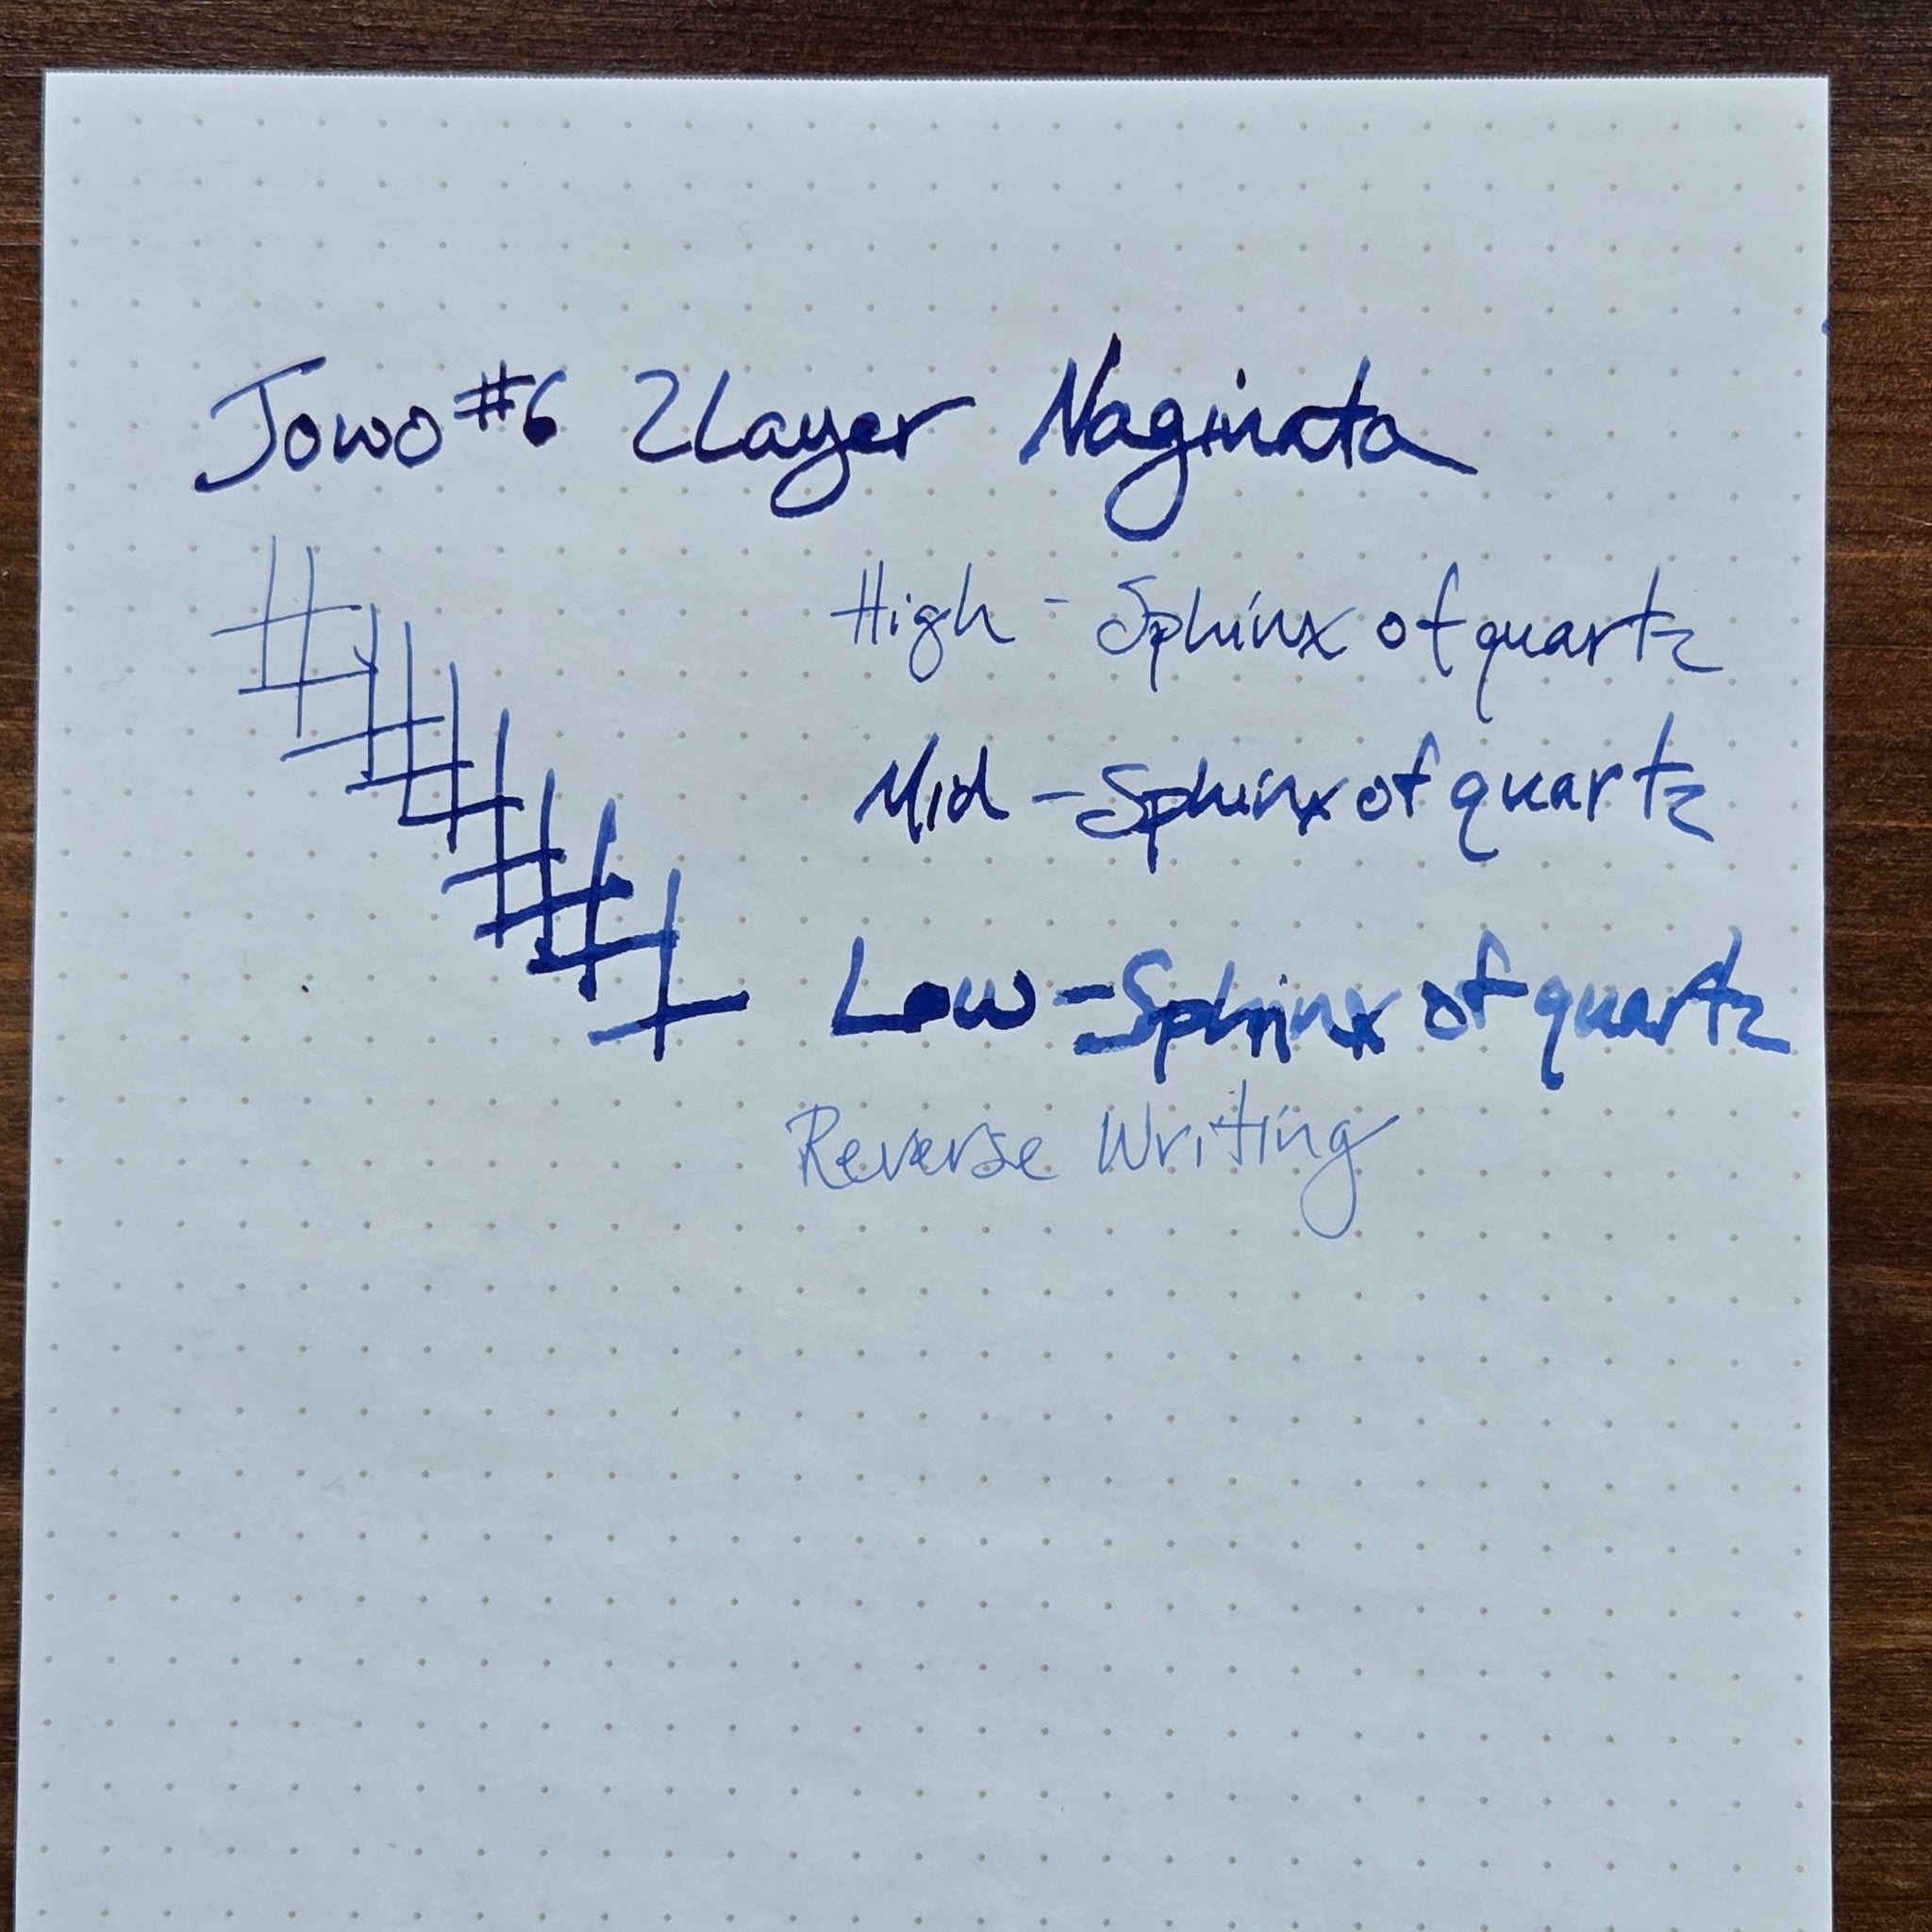 Jowo #6 2Layer Naginata
High - Sphinx of quartz
Mid - Sphinx of quartz
Low - Sphinx of quartz
Reverse Writing